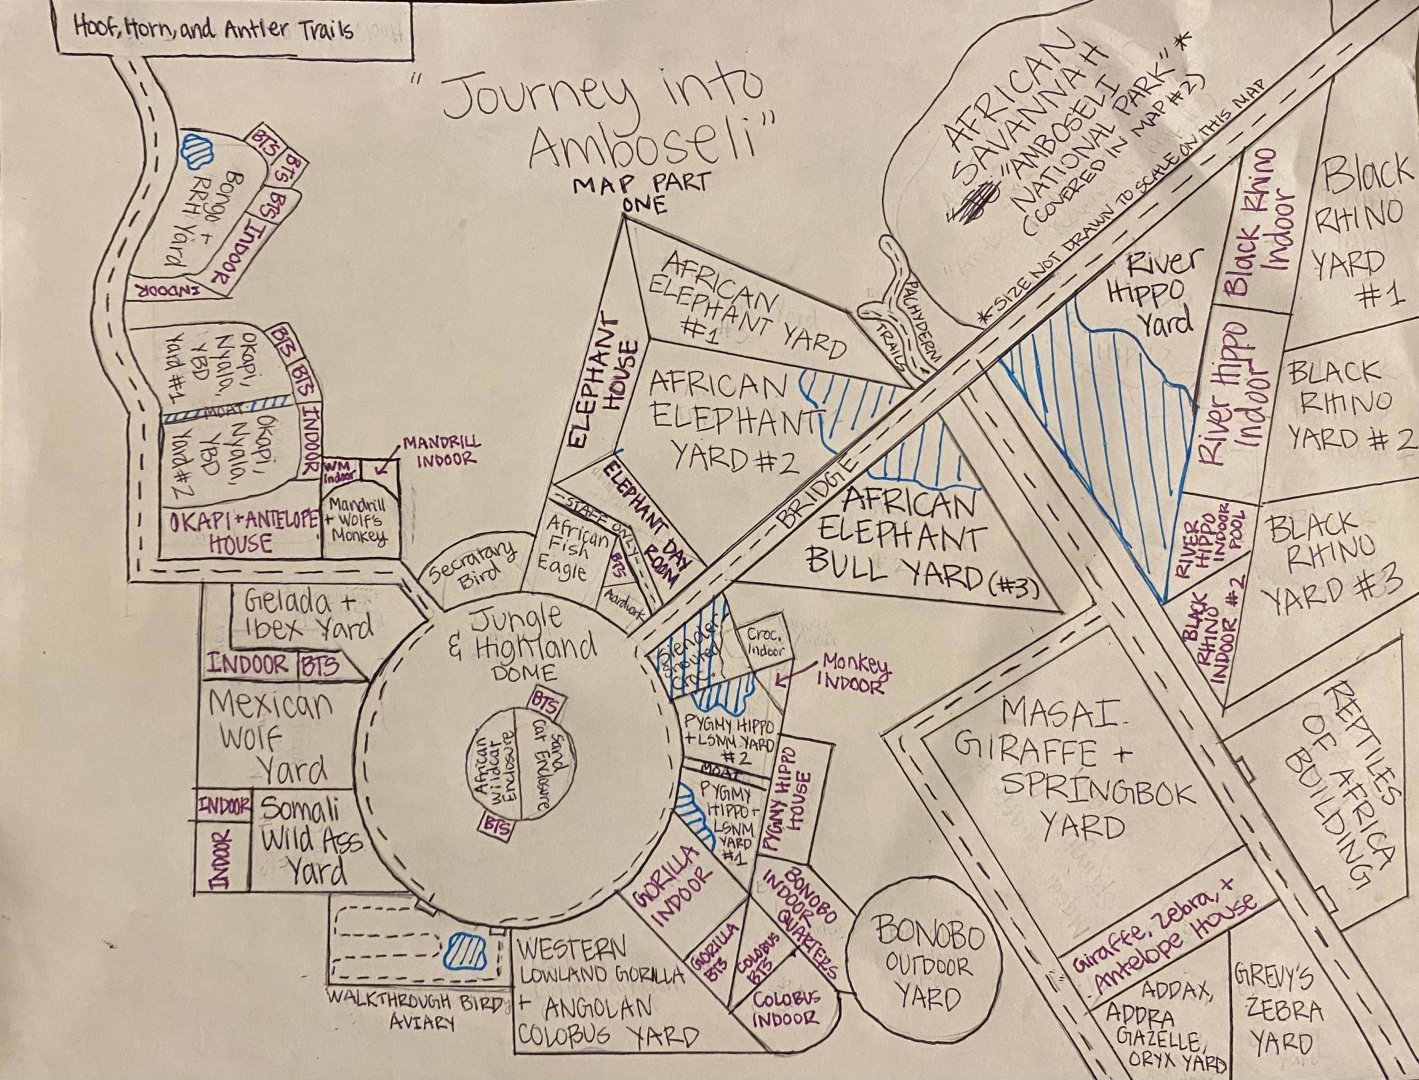 Hoof, Horn, and Antler Trails
"Journey into
Amboseli"
MAP PART
ONE
AFRICAN
SAVANNAH
"AMBOSELI
NATIONAL PARK" *
(COVERED IN MAP #2)
* SIZE NOT DRAWN TO SCALE ON THIS MAP
PACHYDERM
TRAILS
BTS
BTS
BTS
INDOOR
Bongo +
RRH Yard
INDOOR
Okapi,
Nyala,
YBD
Yard #1
BTS
BTS
INDOOR
MOAT
Okapi,
Nyala,
YBD
Yard #2
OKAPI + ANTELOPE
HOUSE
WM
Indoor
MANDRILL
INDOOR
Mandrill
+ Wolf's
Monkey
AFRICAN
ELEPHANT YARD
#1
ELEPHANT
HOUSE
AFRICAN
ELEPHANT
YARD #2
ELEPHANT DAY
ROOM
STAFF ONLY
African
Fish
Eagle
BTS
Aardvark
BRIDGE
AFRICAN
ELEPHANT
BULL YARD (#3)
River
Hippo
Yard
Black Rhino
Indoor
River Hippo
Indoor
RIVER
HIPPO
INDOOR
POOL
BLACK
RHINO
INDOOR #2
Black
RHINO
YARD
#1
BLACK
RHINO
YARD #2
BLACK
RHINO
YARD #3
Secratary
Bird
Jungle
& Highland
DOME
BTS
African
Wildcat
Enclosure
Sand
Cat Enclosure
BTS
Gelada +
Ibex Yard
INDOOR
BTS
Mexican
Wolf
Yard
INDOOR
INDOOR
Somali
Wild Ass
Yard
WALKTHROUGH BIRD
AVIARY
Slender
Snouted
Croc.
Croc.
Indoor
Monkey
INDOOR
PYGMY HIPPO
+ LSNM YARD
#2
MOAT
PYGMY
HIPPO +
LSNM
YARD
#1
PYGMY HIPPO
HOUSE
GORILLA
INDOOR
GORILLA
BTS
COLOBUS
BTS
BONOBO
INDOOR
QUARTERS
COLOBUS
INDOOR
WESTERN
LOWLAND GORILLA
+ ANGOLAN
COLOBUS YARD
BONOBO
OUTDOOR
YARD
MASAI
GIRAFFE +
SPRINGBOK
YARD
Giraffe, Zebra, +
Antelope House
ADDAX,
ADDRA
GAZELLE,
ORYX YARD
GREVY'S
ZEBRA
YARD
REPTILES
OF AFRICA
BUILDING